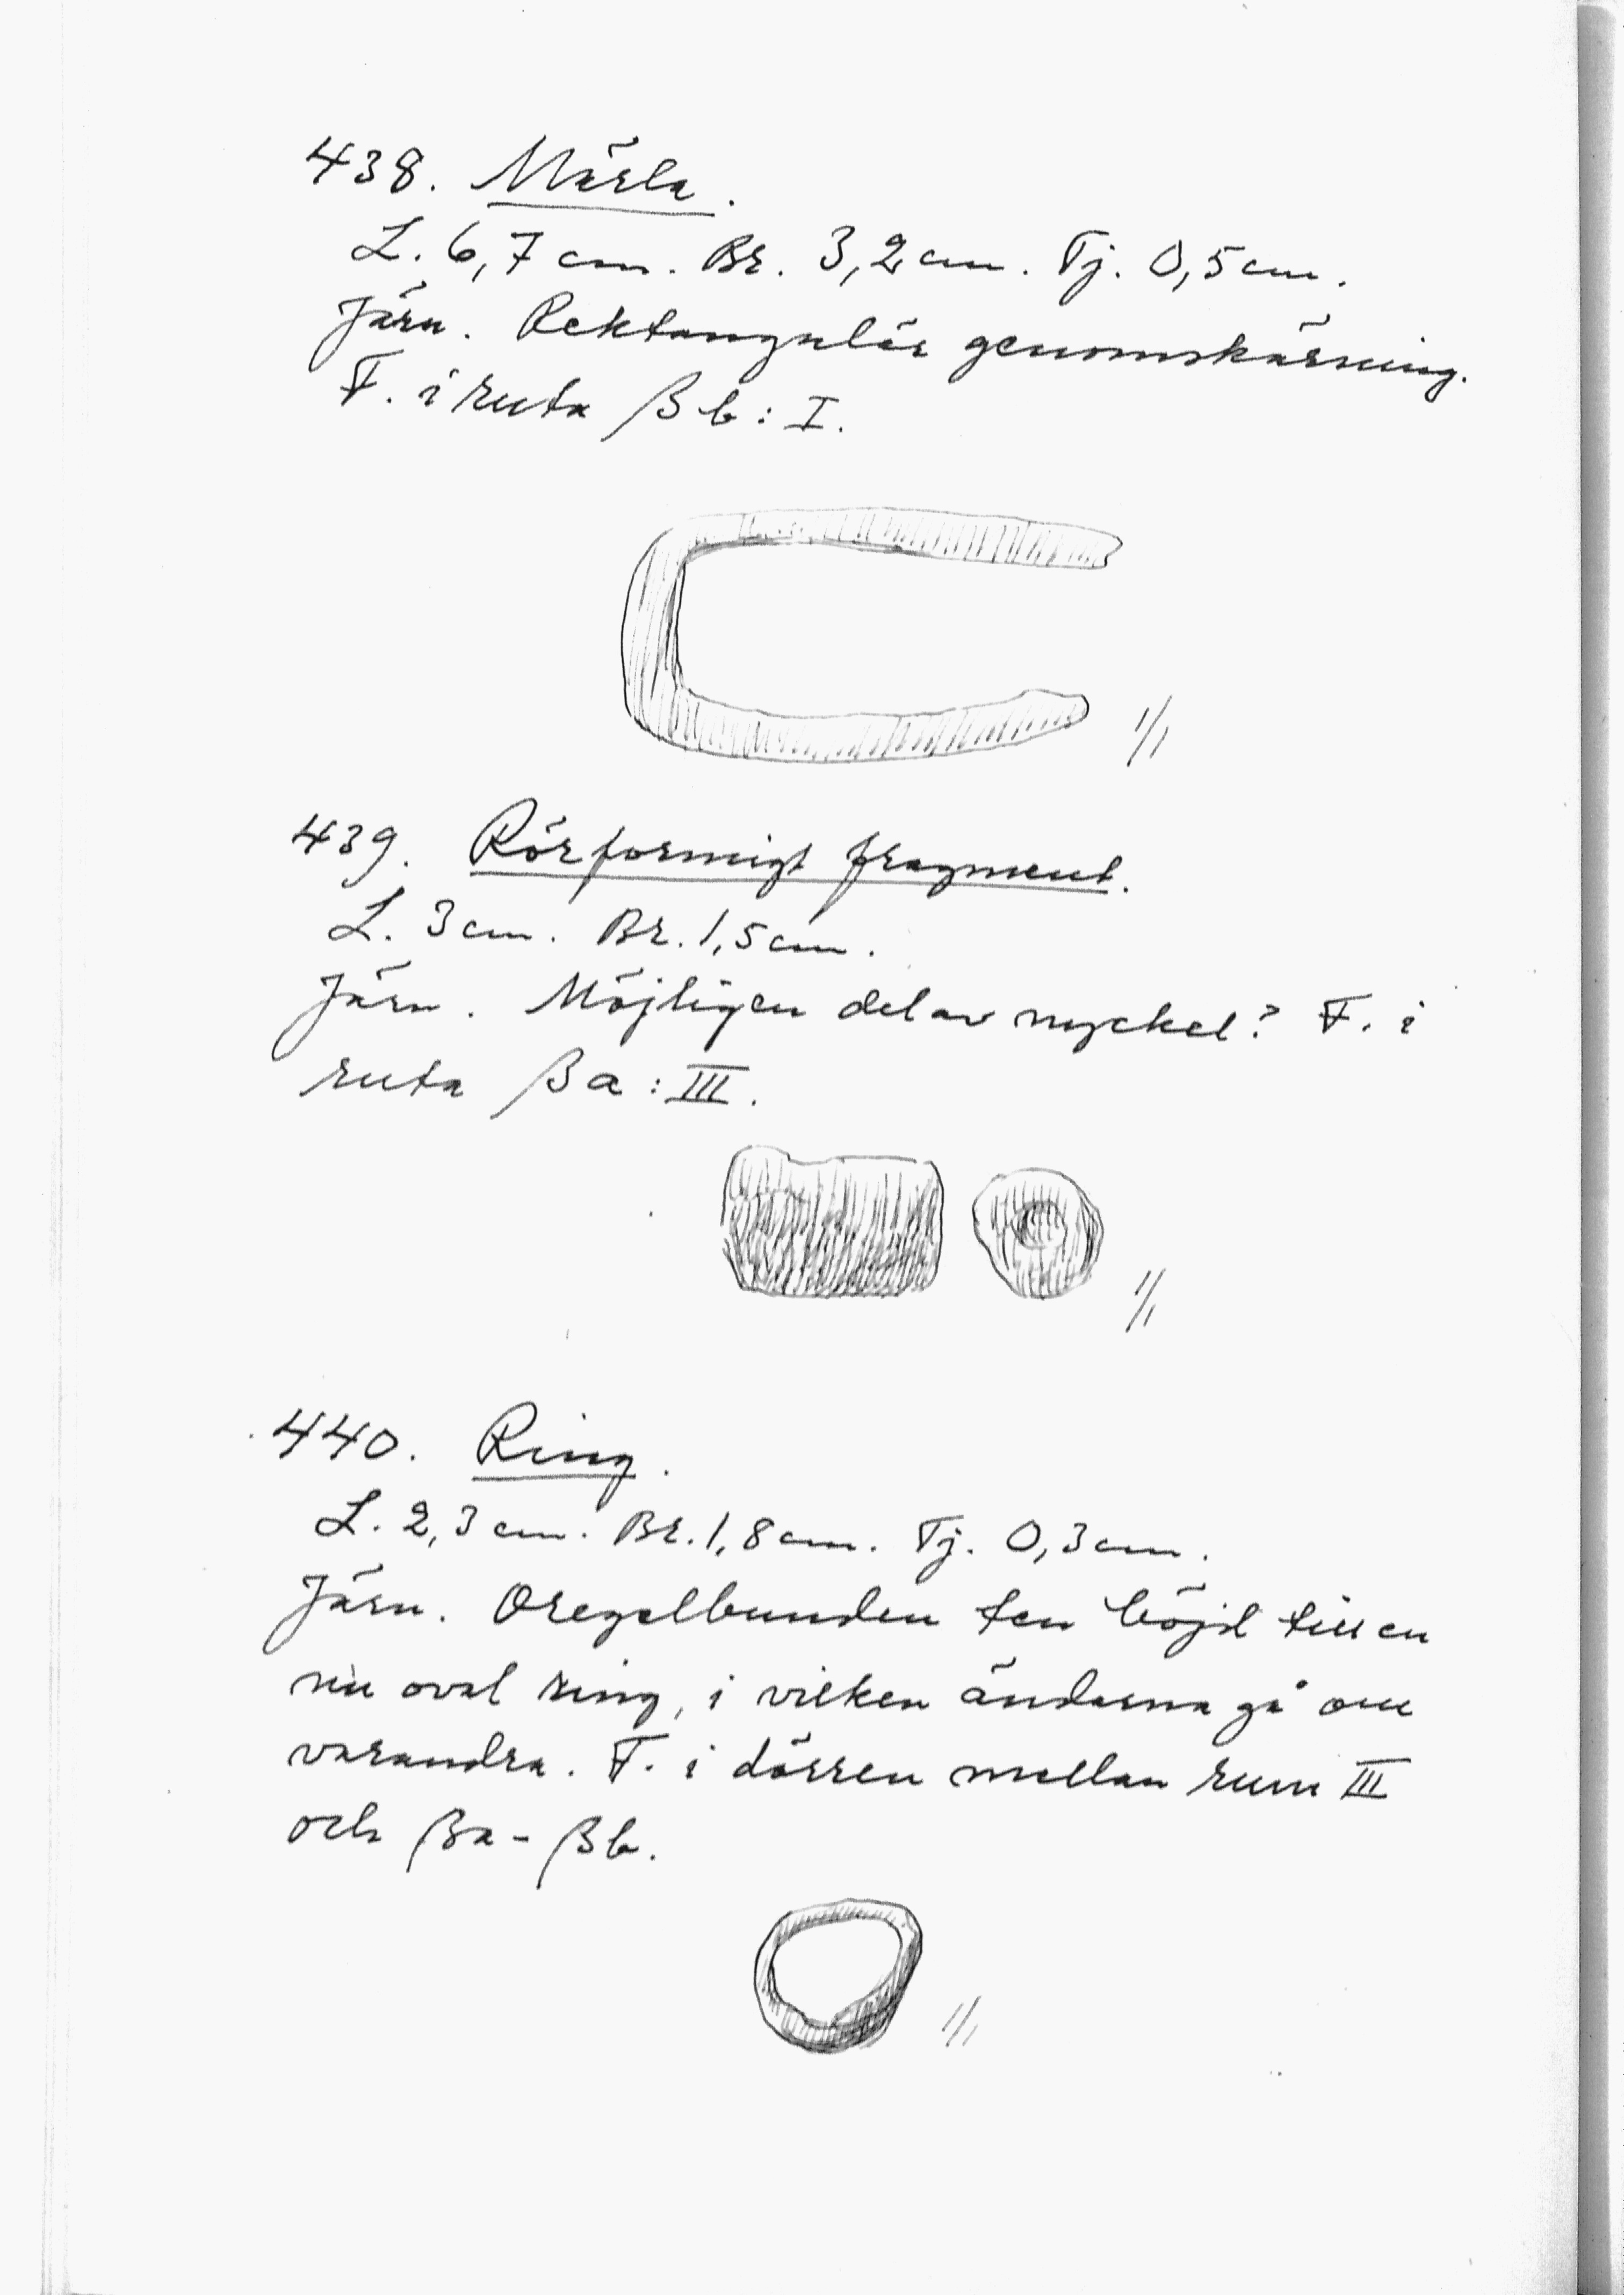 438. Märla.
L. 6,7 cm. Br. 3,2 cm. Tj. 0,5 cm.
Järn. Rektangulär genomskärning.
F. i ruta βb : I.
1/1
439. Rörformigt fragment.
L. 3 cm. Br. 1,5 cm.
Järn. Möjligen del av nyckel? F. i
ruta βa : III.
1/1
440. Ring.
L. 2,3 cm. Br. 1,8 cm. Tj. 0,3 cm.
Järn. Oregelbunden ten böjd till en
nu oval ring, i vilken ändarna gå om
varandra. F. i dörren mellan rum III
och βa - βb.
1/1